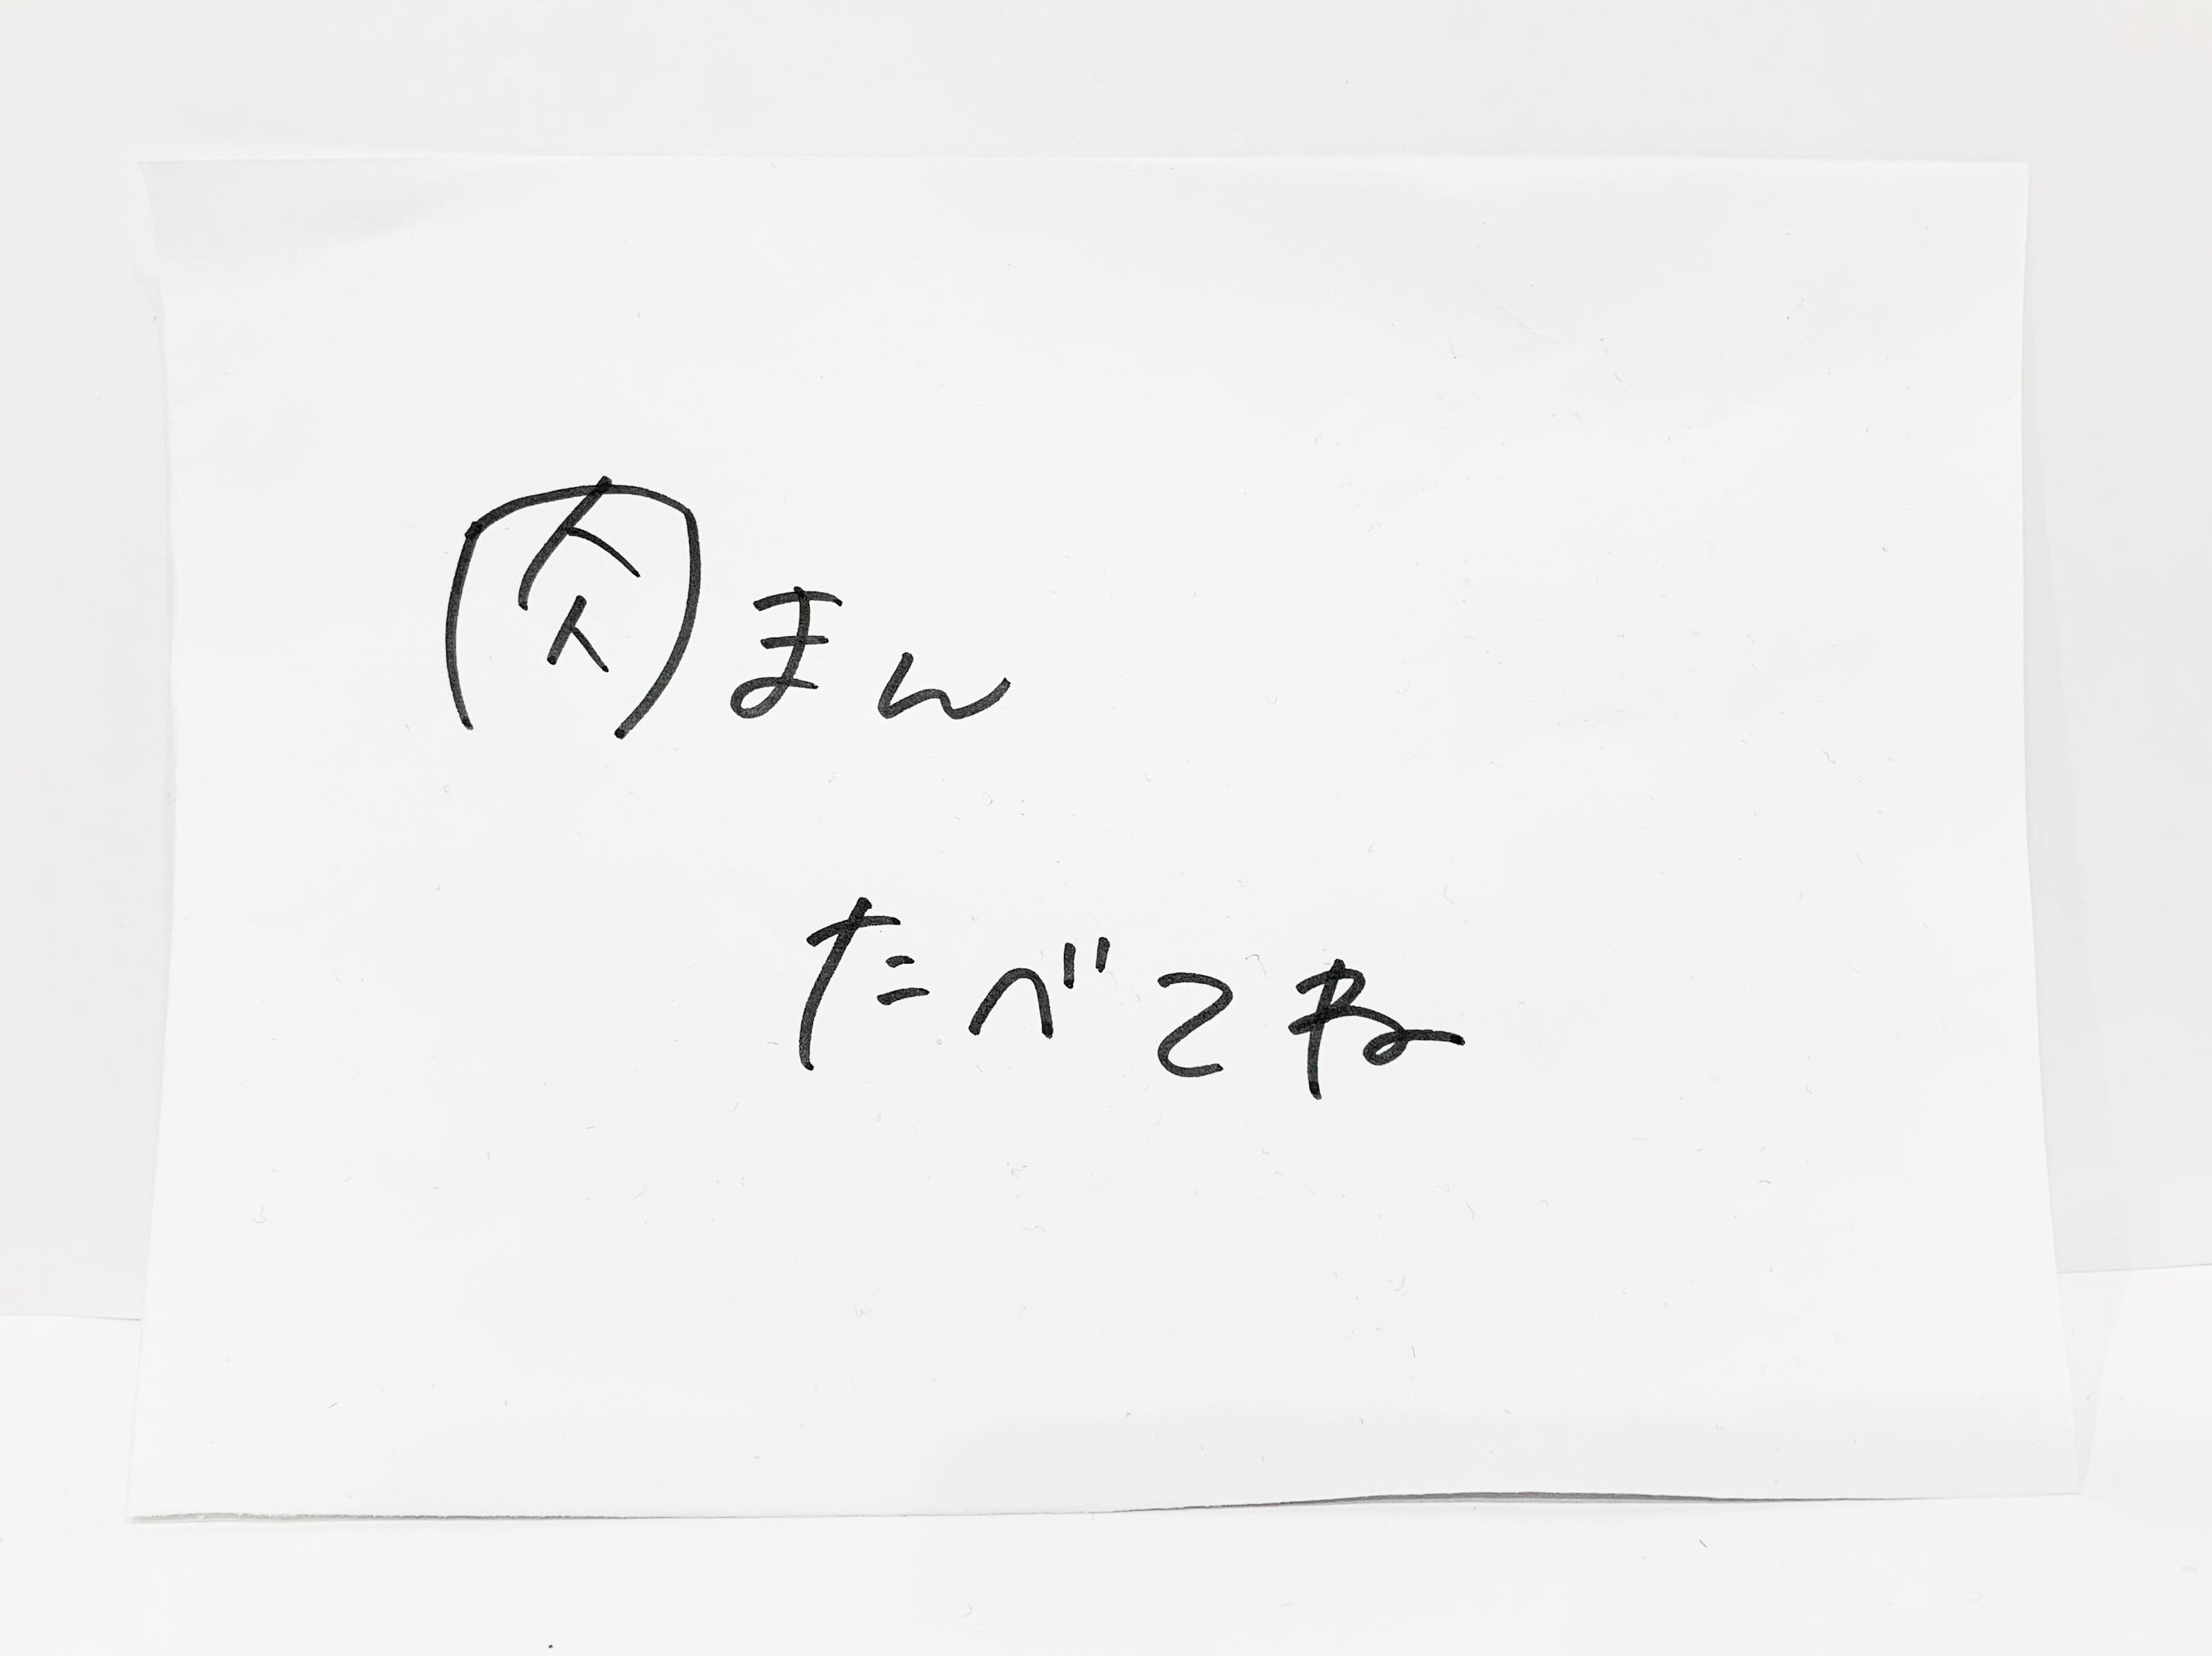 肉まん
たべてね